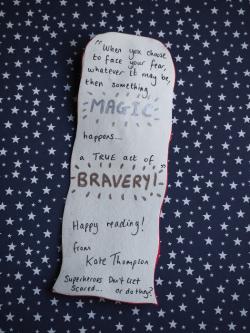 "When you choose
to face your fear,
whatever it may be,
then something
MAGIC
happens...
a TRUE act of
BRAVERY!"
Happy reading!
from
Kate Thompson
Superheroes Don't Get
Scared... or do they?